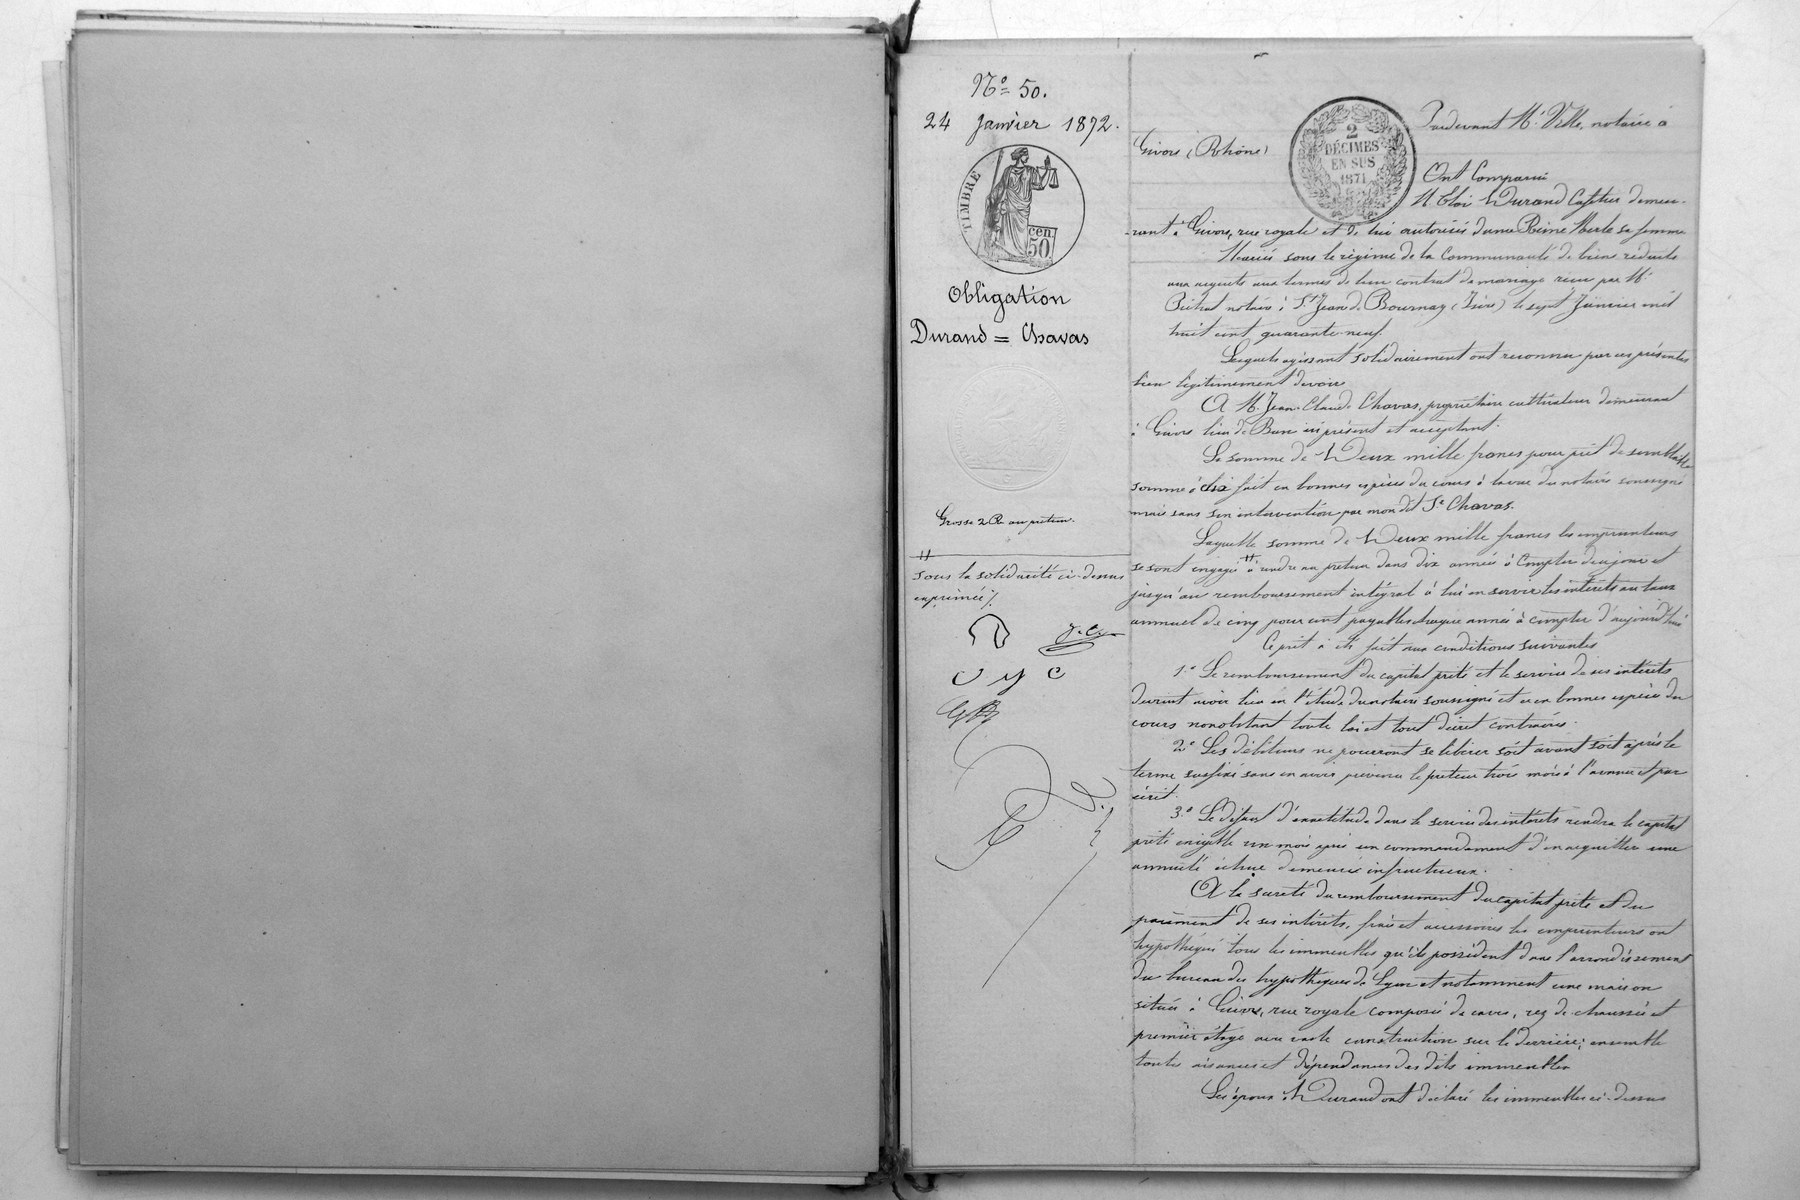 N° 50.
24 Janvier 1872.
TIMBRE
cen.
50
Obligation
Durand = Chavas
Grosse 2 R. au prêteur.
#
sous la solidarité ci-dessus
exprimée ./.
2
DÉCIMES
EN SUS
1871
Pardevant Me Velle, notaire à
Givors (Rhône)
Ont Comparu
M. Eloi Durand Cafetier demeu-
-rant à Givors, rue royale et de lui autorisée dame Reine Merle sa femme
Mariés sous le régime de la Communauté de biens réduite
aux acquets aux termes de leur contrat de mariage reçu par Me
notaire à St Jean de Bournay (Isère) le sept Janvier mil
huit cent quarante-neuf.
Lesquels agissant solidairement ont reconnu par ces présentes
bien légitimement devoir
A M. Jean-Claude Chavas, propriétaire cultivateur demeurant
à Givors lieu de Bans ici présent et acceptant.
La somme de Deux mille francs pour prêt de semblable
somme à eux fait en bonnes espèces du cours à la vue du notaire soussigné
mais sans son intervention par mon dit Sr Chavas.
Laquelle somme de Deux mille francs les emprunteurs
se sont engagés # à rendre au prêteur dans dix années à Compter de ce jour et
jusqu'au remboursement intégral à lui en servir les intérêts au taux
annuel de cinq pour cent payables chaque année à compter d'aujourd'hui
Ce prêt a été fait aux conditions suivantes
1° Le remboursement du capital prêté et le service de ses intérêts
devront avoir lieu en l'étude du notaire soussigné et en bonnes espèces du
cours nonobstant toute loi et tout décret contraires.
2° Les débiteurs ne pourront se libérer soit avant soit après le
terme susfixé sans en avoir prévenu le prêteur trois mois à l'avance et par
écrit.
3° Le défaut d'exactitude dans le service des intérêts rendra le capital
prêté exigible un mois après un commandement d'en acquitter une
annuité échue demeuré infructueux.
A la sureté du remboursement du capital prêté et du
paiement de ses intérêts, frais et accessoires les emprunteurs ont
hypothéqué tous les immeubles qu'ils possèdent dans l'arrondissement
du bureau des hypothèques de Lyon et notamment une maison
située à Givors, rue royale composée de caves, rez de chaussée et
premier étage avec vaste construction sur le derrière; ensemble
toutes aisances et dépendances des dits immeubles
Les époux Durand ont déclaré les immeubles ci-dessus